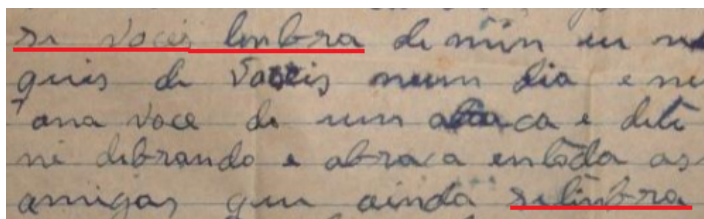 si voceis lenbra de min eu n
quis di voceis num dia e ne
ana voce de um a ca e dili
ni dibrando e abraca entoda as
amigas que ainda selinbra